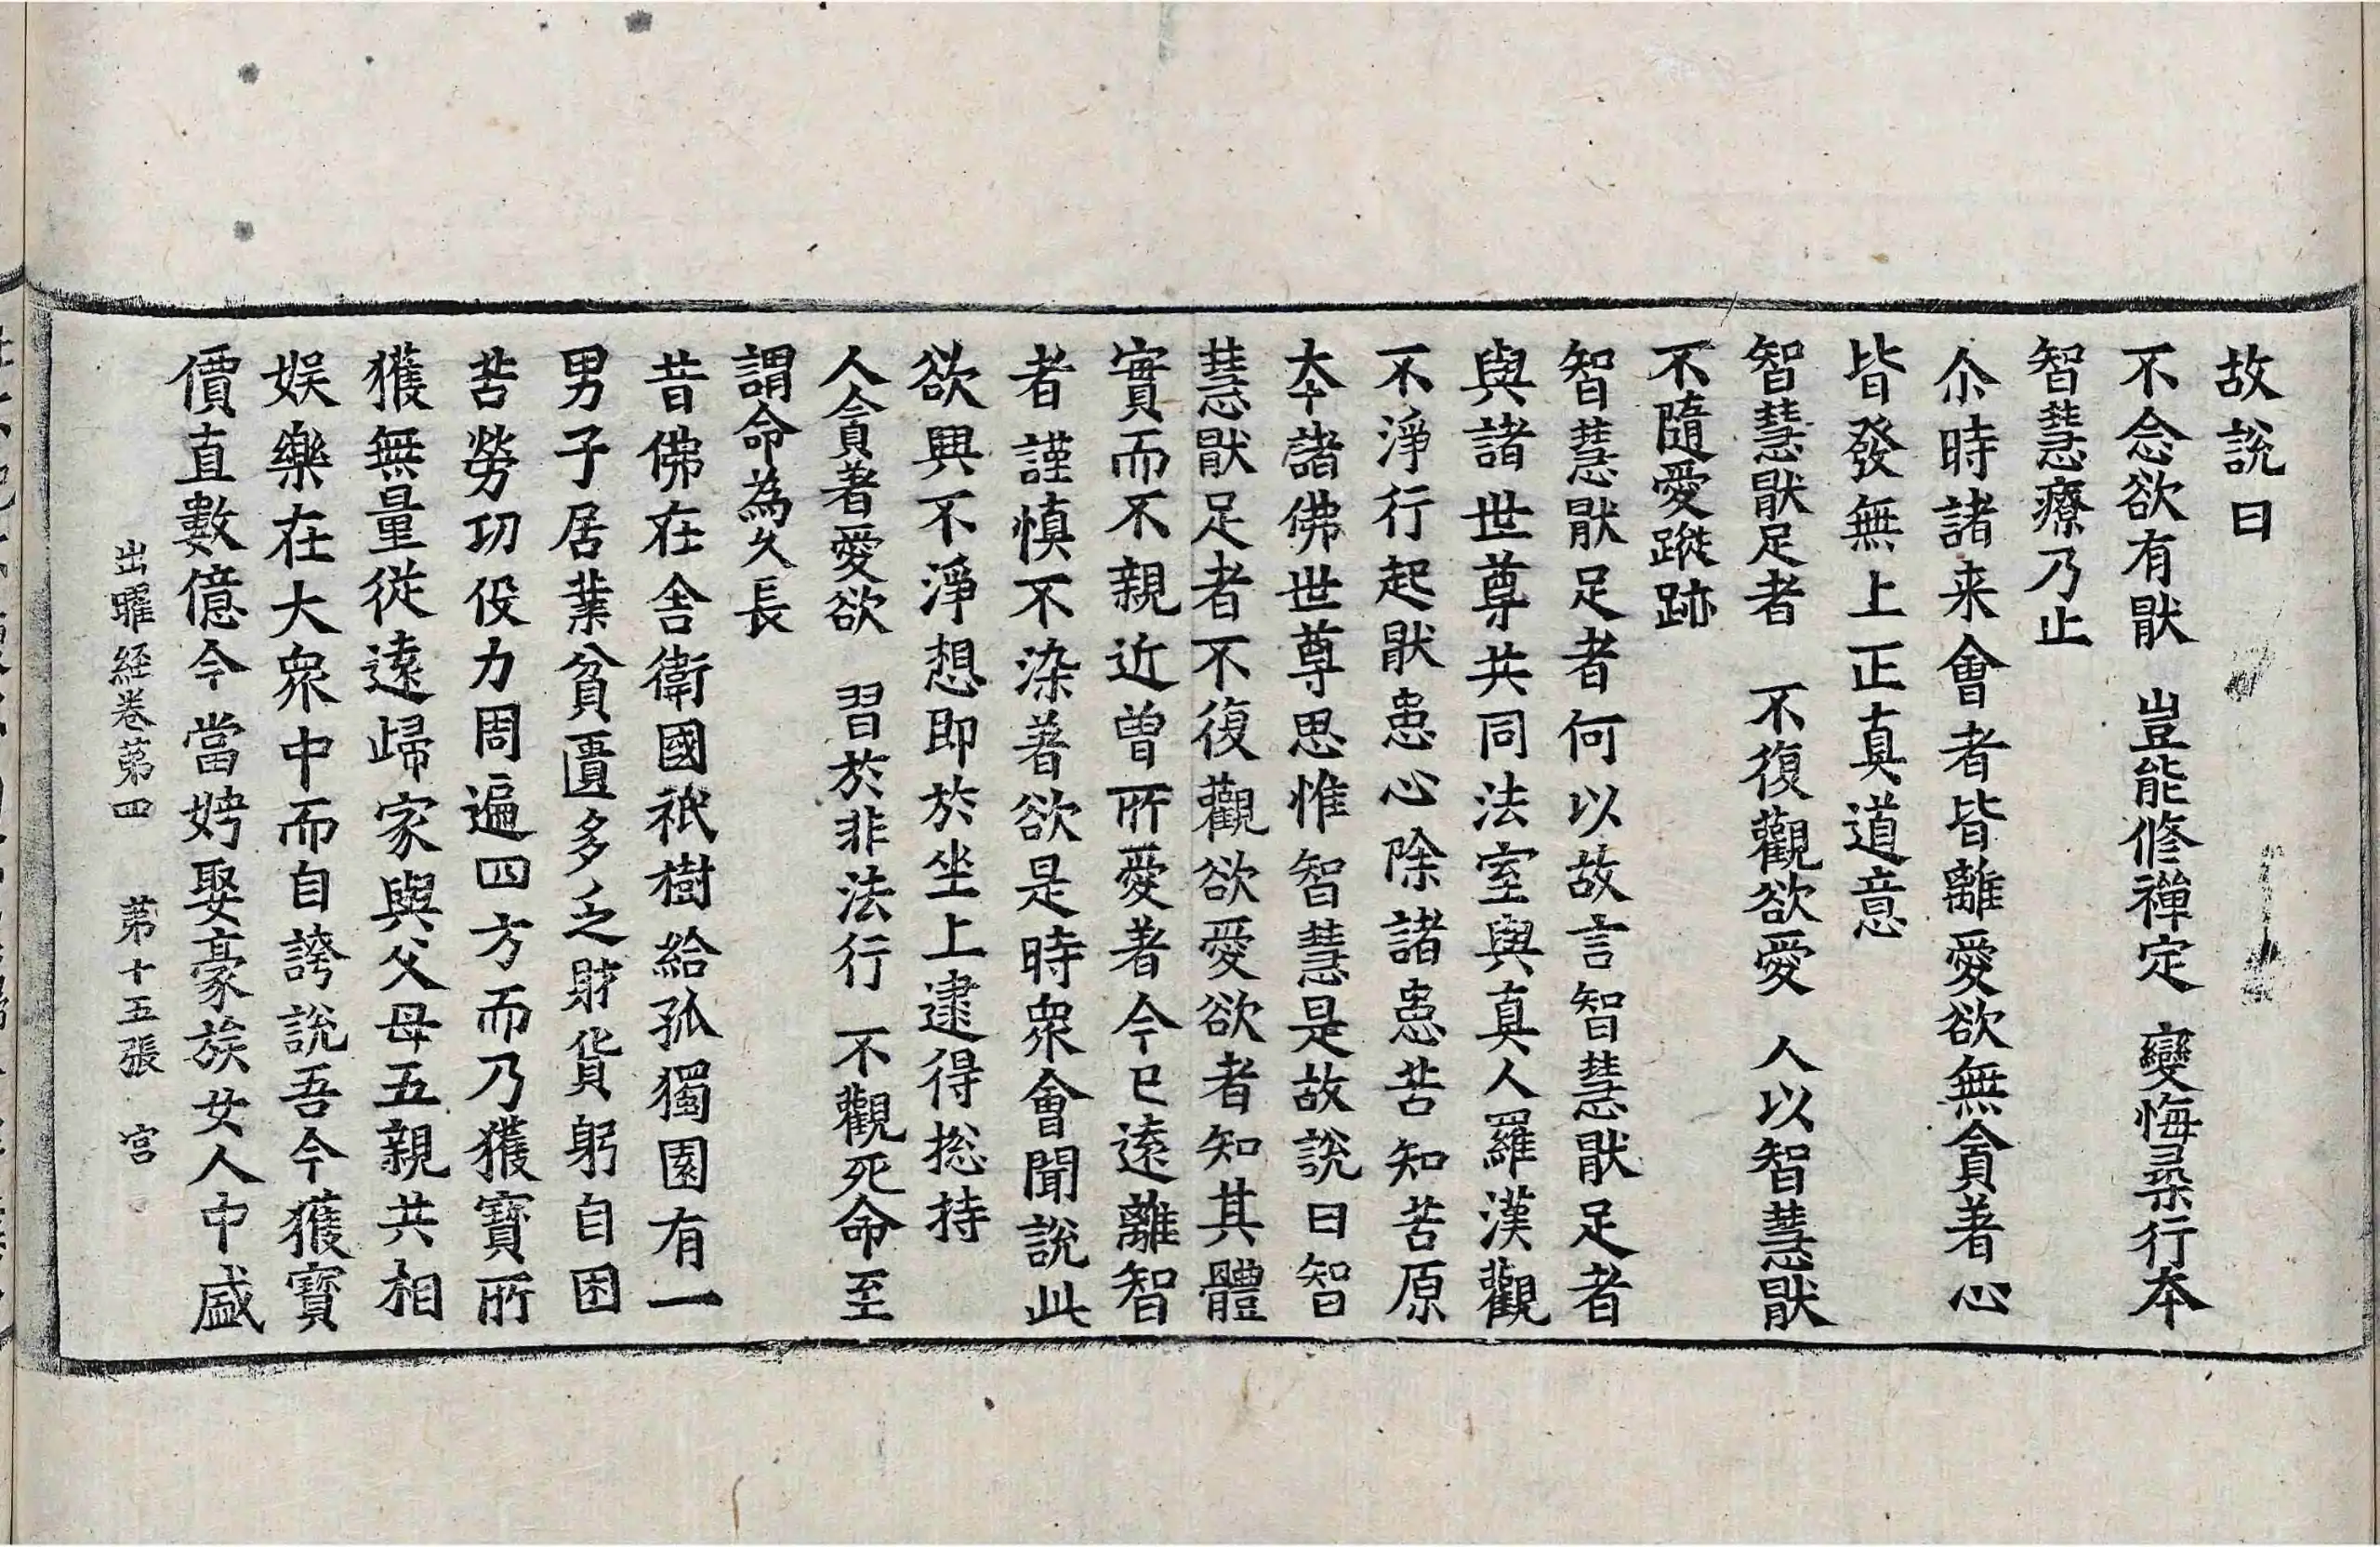 故說曰
不念欲有猒　豈能修禪定　變悔尋行本
智慧療乃止
尒時諸来會者皆離愛欲無貪著心
皆發無上正真道意
智慧猒足者　不復觀欲愛　人以智慧猒
不隨愛蹤跡
智慧猒足者何以故言智慧猒足者
與諸世尊共同法室與真人羅漢觀
不淨行起猒患心除諸患苦知苦原
本諸佛世尊思惟智慧是故說曰智
慧猒足者不復觀欲愛欲者知其體
實而不親近曾所愛著今已遠離智
者謹慎不染著欲是時衆會聞說此
欲興不淨想即於坐上逮得揔持
人貪著愛欲　習於非法行　不觀死命至
謂命為久長
昔佛在舍衛國祇樹給孤獨園有一
男子居業貧匱多乏財貨躬自困
苦勞功役力周遍四方而乃獲寶所
獲無量從遠歸家與父母五親共相
娛樂在大衆中而自誇說吾今獲寶
價直數億今當娉娶豪族女人中盛
出曜経卷第四　第十五張　宮